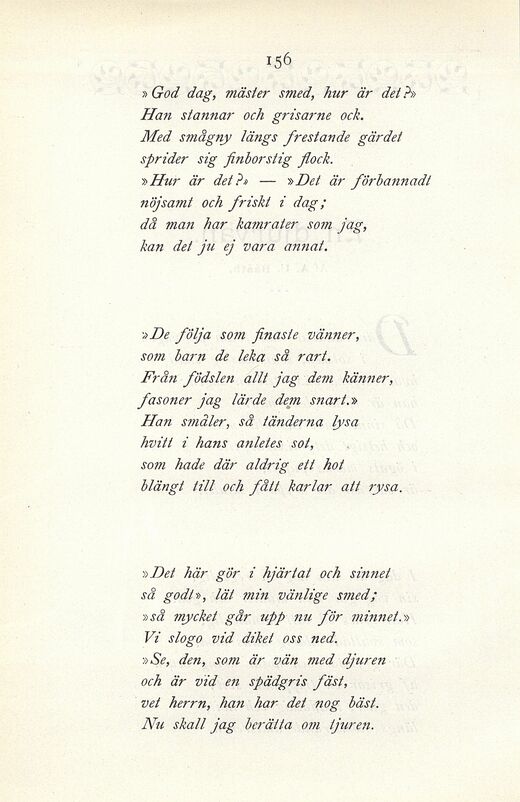 156
»God dag, mäster smed, hur är det?»
Han stannar och grisarne ock.
Med smågny längs frestande gärdet
sprider sig finborstig flock.
»Hur är det?» — »Det är förbannadt
nöjsamt och friskt i dag;
då man har kamrater som jag,
kan det ju ej vara annat.
»De följa som finaste vänner,
som barn de leka så rart.
Från födslen allt jag dem känner,
fasoner jag lärde dem snart.»
Han småler, så tänderna lysa
hvitt i hans anletes sot,
som hade där aldrig ett hot
blängt till och fått karlar att rysa.
»Det här gör i hjärtat och sinnet
så godt», lät min vänlige smed;
»så mycket går upp nu för minnet.»
Vi slogo vid diket oss ned.
»Se, den, som är vän med djuren
och är vid en spädgris fäst,
vet herrn, han har det nog bäst.
Nu skall jag berätta om tjuren.